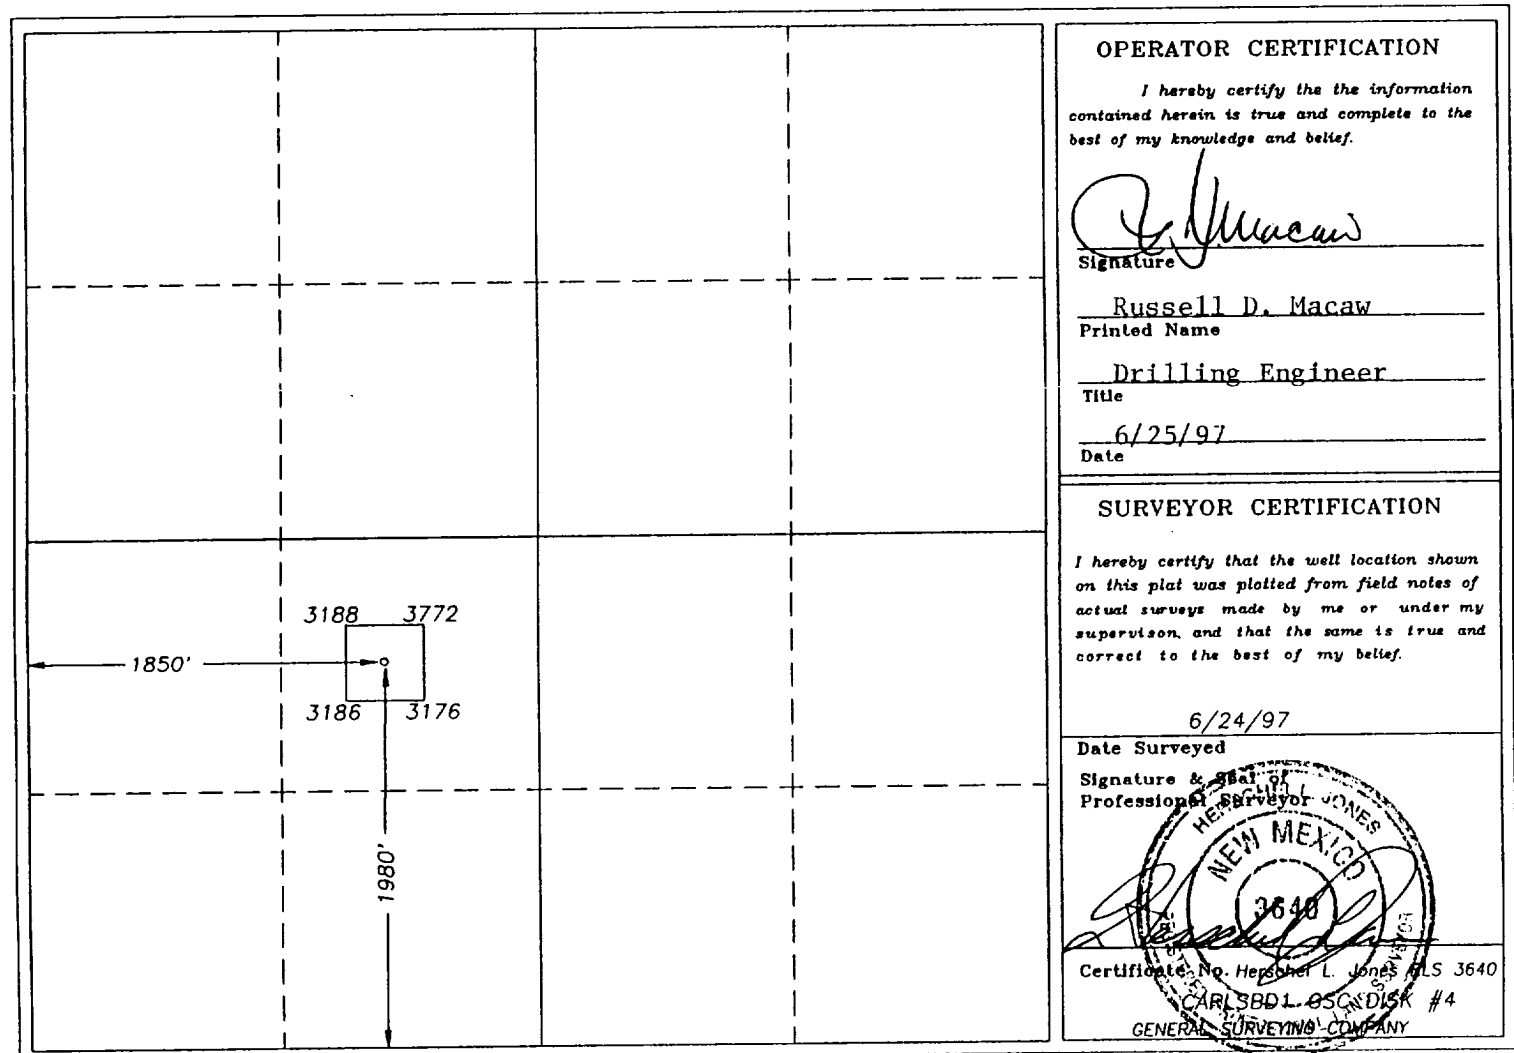 3188 3772
1850'
3186 3176
1980'
OPERATOR CERTIFICATION
I hereby certify the the information
contained herein is true and complete to the
best of my knowledge and belief.
Signature
Russell D. Macaw
Printed Name
Drilling Engineer
Title
6/25/97
Date
SURVEYOR CERTIFICATION
I hereby certify that the well location shown
on this plat was plotted from field notes of
actual surveys made by me or under my
supervison, and that the same is true and
correct to the best of my belief.
6/24/97
Date Surveyed
Signature & Seal of
Professional Surveyor
HERSCHEL L. JONES
NEW MEXICO
3640
Certificate No. Herschel L. Jones RLS 3640
CARLSBD1 GSC DISK #4
GENERAL SURVEYING COMPANY